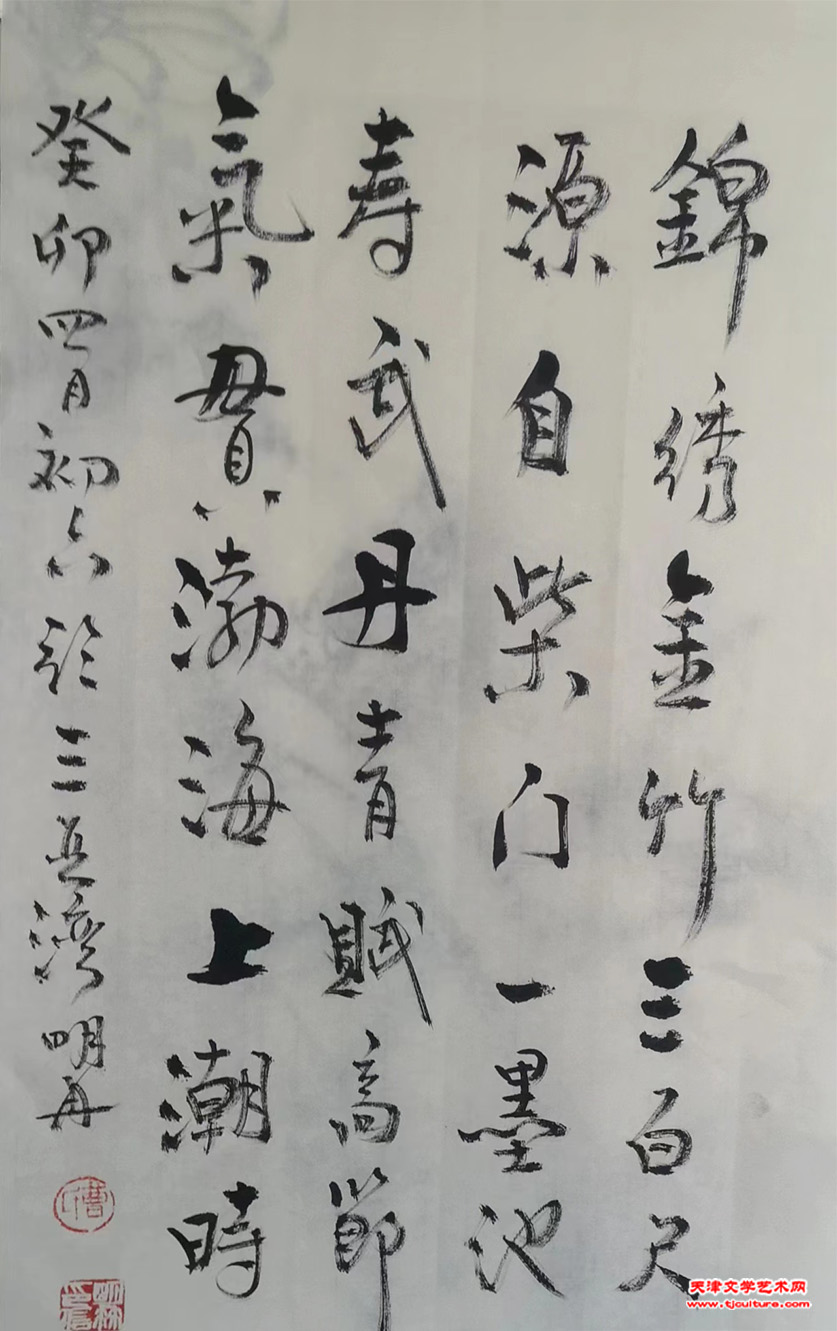 錦绣金竹三百尺
源自柴门一墨池
寿武丹青賦高節
氣貫渤海上潮時
癸卯四月初六於三亚湾明舟
天津文学艺术网
www.tjculture.com